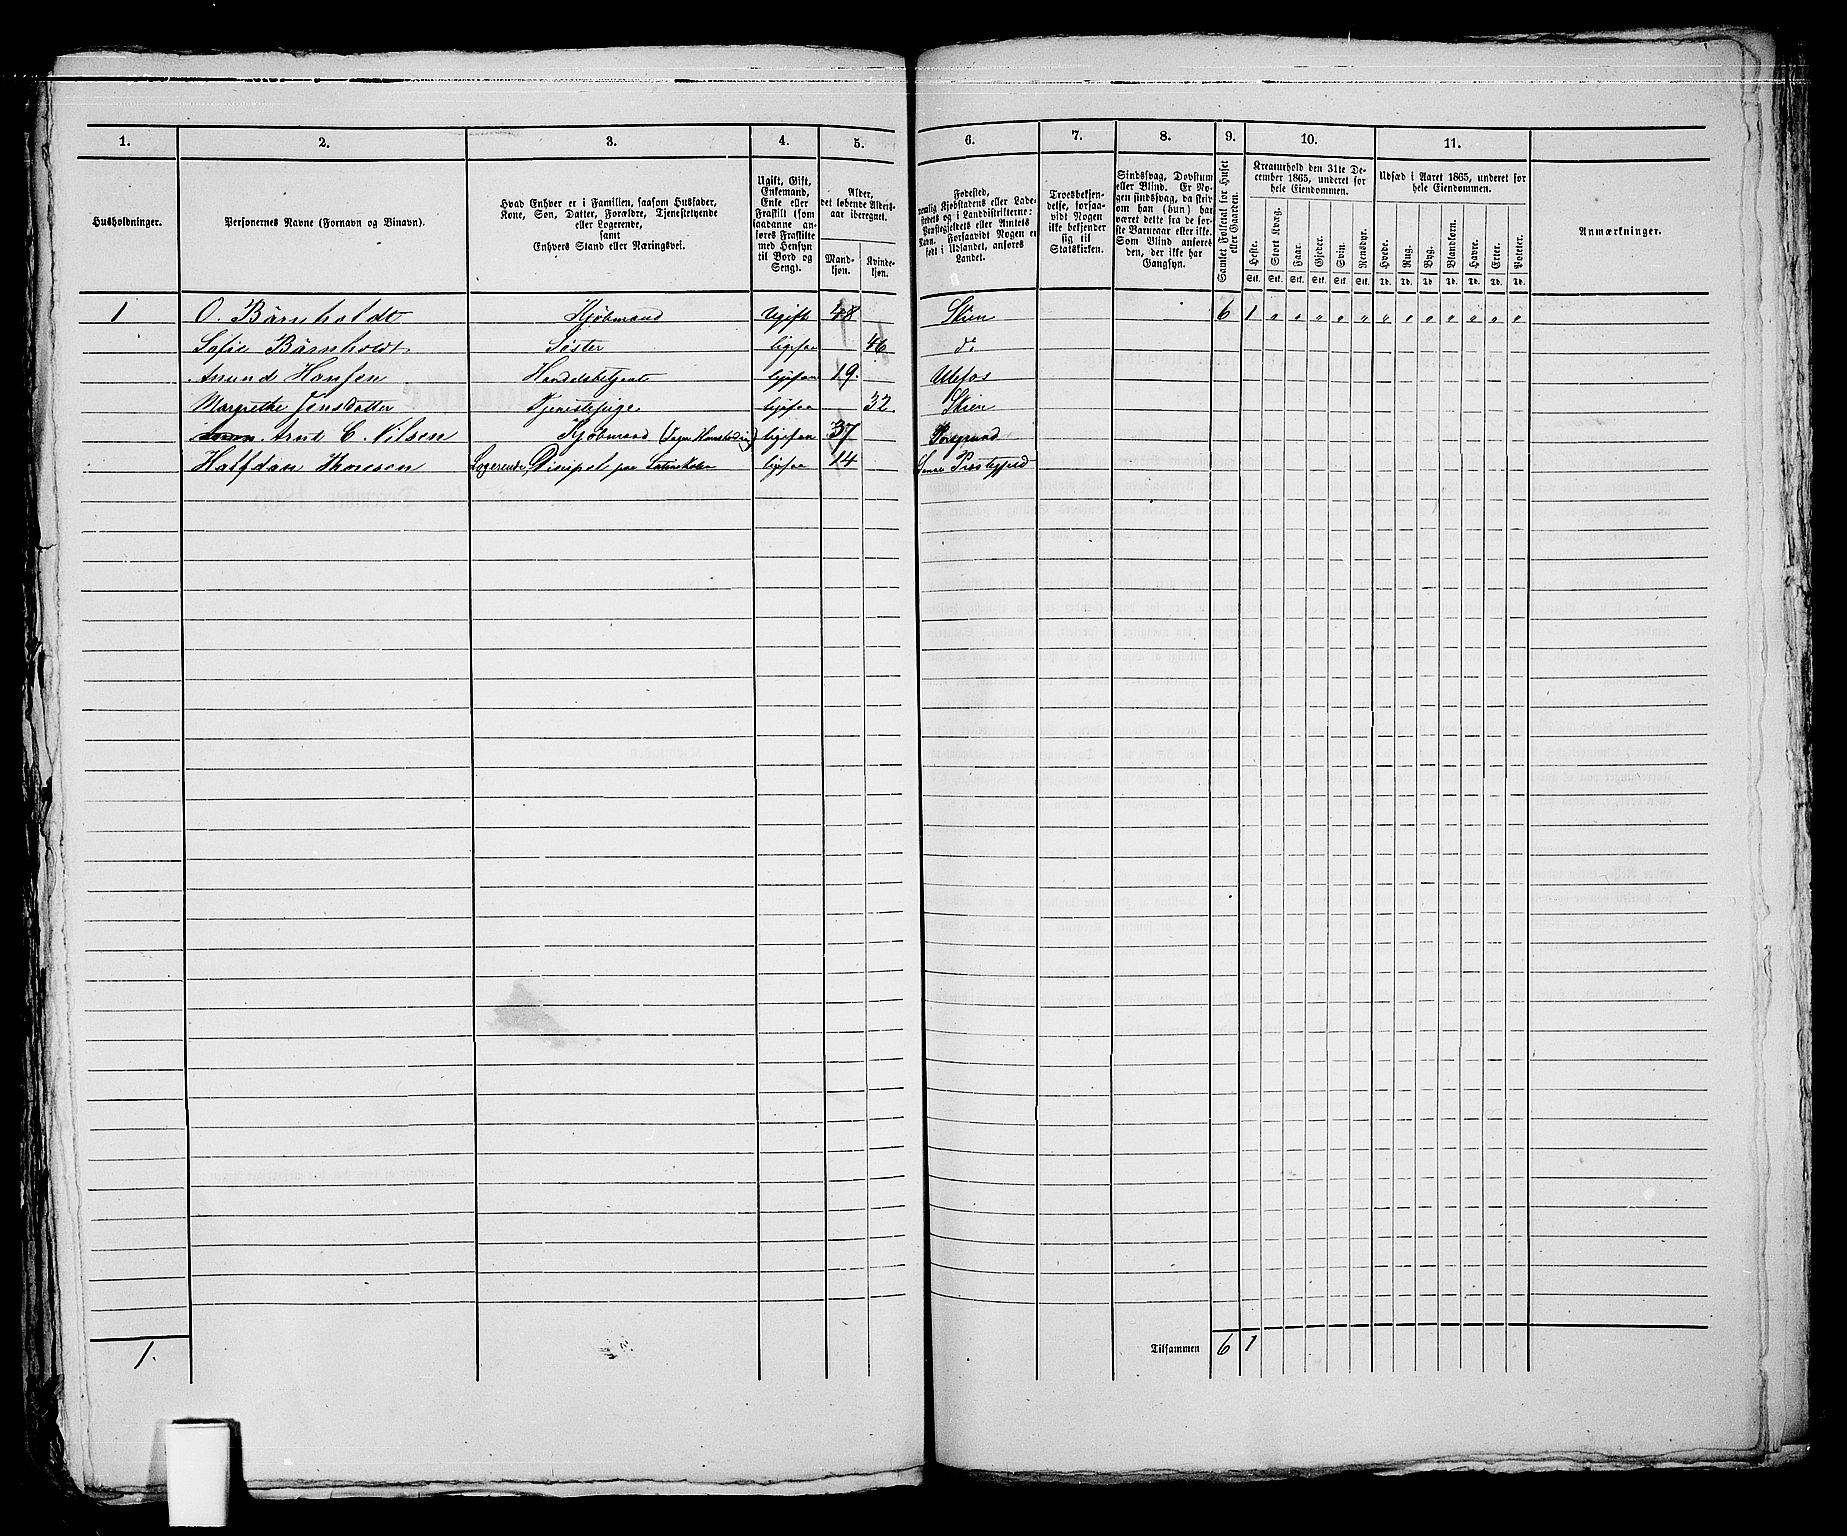 1. 2. 3. 4. 5. 6. 7. 8. 9. 10. 11.
Husholdninger.
Personernes Navne (Fornavn og Binavn).
Hvad Enhver er i Familien, saasom Husfader,
Kone, Søn, Datter, Forældre, Tjenestetyende
eller Logerende,
samt
Enhvers Stand eller Næringsvei.
Ugift, Gift,
Enkemand,
Enke eller
Fraskilt (som
saadanne an-
føres Fraskilte
med Hensyn
til Bord og
Seng).
Alder,
det løbende Alders-
aar iberegnet.
Mand-
kjøn.
Kvinde-
kjøn.
Fødested,
nemlig Kjøbstadens eller Lade-
stedets og i Landdistrikterne:
Præstegjeldets eller Amtets
Navn. Forsaavidt Nogen er
født i Udlandet, anføres
Landet.
Troesbekjen-
delse, forsaa-
vidt Nogen
ikke bekjender
sig til
Statskirken.
Sindssvag, Døvstum
eller Blind. Er No-
gen sindssvag, da skriv
om han (hun) har
været dette fra de før-
ste Barneaar eller ikke.
Som Blind anføres
den, der ikke har
Gangsyn.
Samlet Folketal for Huset
eller Gaarden.
Kreaturhold den 31te De-
cember 1865, underet for
hele Eiendommen.
Heste. Stort Kvæg. Faar. Gjeder. Svin. Rensdyr.
Stk. Stk. Stk. Stk. Stk. Stk.
Udsæd i Aaret 1865, underet for
hele Eiendommen.
Hvede. Rug. Byg. Blandkorn. Havre. Erter. Poteter.
Td. Td. Td. Td. Td. Td. Td.
Anmærkninger.
1 O. Bärnholdt Kjøbmand Ugift 48 Skien 6 1 " " " " " " " " " " " "
Sofie Bärnholdt Søster ligesaa 46 do
Amund Hansen Handelsbetjent ligesaa 19. Ulefos
Margrethe Jensdatter Tjenestepige ligesaa 32 Skien
Arnt C. Nilsen Kjøbmand ligesaa 37 Porsgrund
Halfdan Thomsen Logerende, Discipel paa Latinskolen ligesaa 14 Præstegjeld
1.
Tilsammen 6 1